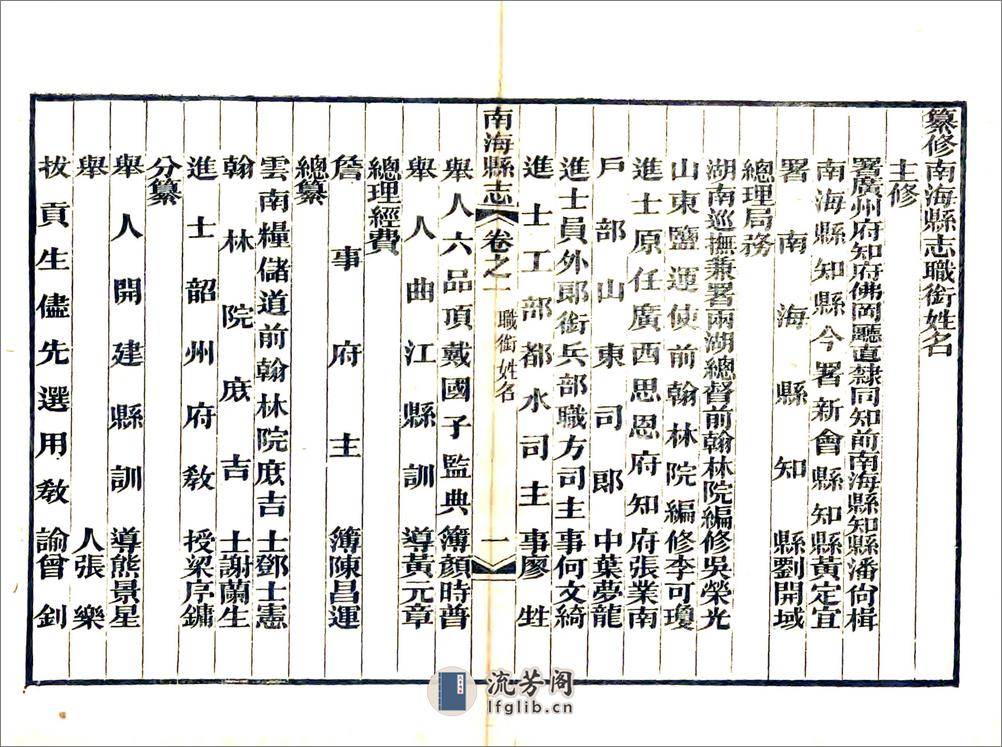 纂修南海縣志職銜姓名
主修
署廣州府知府佛岡廳直隸同知前南海縣知縣潘尙楫
南海縣知縣今署新會縣知縣黃定宜
署南海縣知縣劉開域
總理局務
湖南巡撫兼署兩湖總督前翰林院編修吳榮光
山東鹽運使前翰林院編修李可瓊
進士原任廣西思恩府知府張業南
戶部山東司郞中葉夢龍
進士員外郞銜兵部職方司主事何文綺
進士工部都水司主事廖甡
南海縣志
卷之一
職銜姓名
一
舉人六品頂戴國子監典簿顏時普
舉人曲江縣訓導黃元章
總理經費
詹事府主簿陳昌運
總纂
雲南糧儲道前翰林院庶吉士鄧士憲
翰林院庶吉士謝蘭生
進士韶州府敎授梁序鏞
分纂
舉人開建縣訓導熊景星
舉人張樂
拔貢生儘先選用敎諭曾釗
流芳阁
lfglib.cn